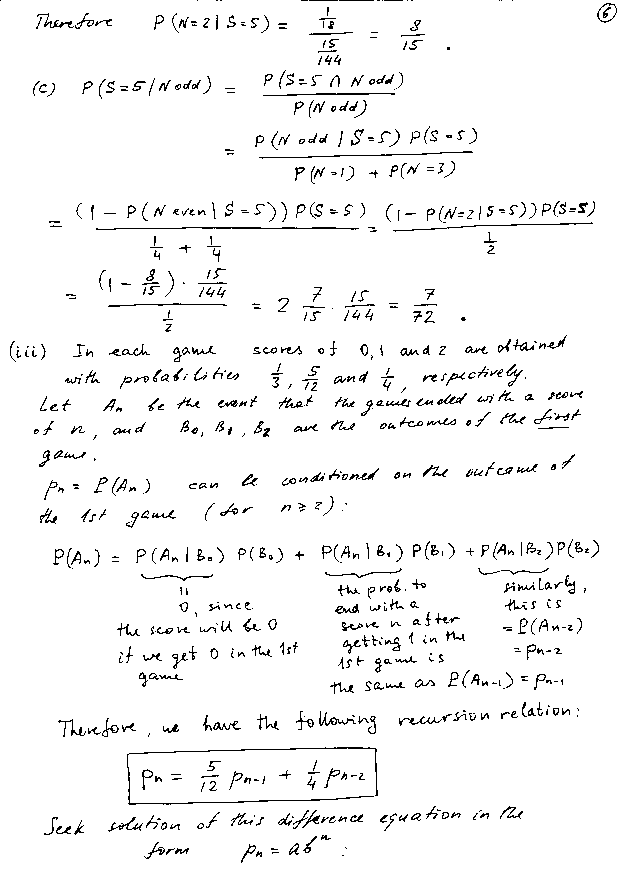 ⑥
Therefore P(N=2|S=5) = (1/18)/(15/144) = 8/15 .
(c) P(S=5|N odd) = P(S=5 ∩ N odd)/P(N odd)
= P(N odd | S=5) P(S=5)/(P(N=1) + P(N=3))
= (1 - P(N even | S=5)) P(S=5)/(1/4 + 1/4) = (1 - P(N=2|S=5)) P(S=5)/(1/2)
= (1 - 8/15) · 15/144/(1/2) = 2 7/15 · 15/144 = 7/72 .
(iii) In each game scores of 0, 1 and 2 are obtained
with probabilities 1/3, 5/12 and 1/4, respectively.
Let An be the event that the games ended with a score
of n, and B0, B1, B2 are the outcomes of the first
game.
pn = P(An) can be conditioned on the outcome of
the 1st game (for n≥2):
P(An) = P(An|B0) P(B0) + P(An|B1) P(B1) + P(An|B2) P(B2)
=
0, since
the score will be 0
if we get 0 in the 1st
game
the prob. to
end with a
score n after
getting 1 in the
1st game is
the same as P(An-1) = pn-1
similarly,
this is
= P(An-2)
= pn-2
Therefore, we have the following recursion relation:
pn = 5/12 pn-1 + 1/4 pn-2
Seek solution of this difference equation in the
form pn = ab^n :